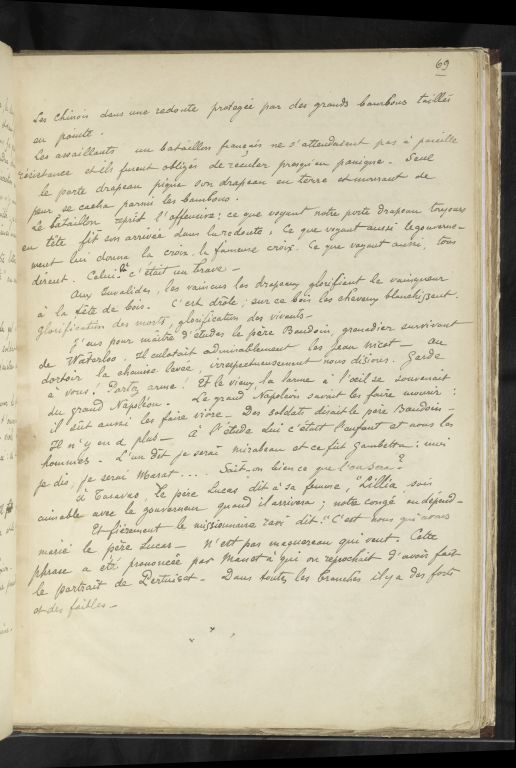 69
Les Chinois dans une redoute protégée par des grands bambous taillés
en pointe.
Les assaillants un bataillon français ne s'attendaient pas à pareille
résistance et ils furent obligés de reculer presqu'en panique. Seul
le porte drapeau pique son drapeau en terre et mourant de
peur se cacha parmi les bambous.
Le bataillon reprit l'offensive: ce que voyant notre porte drapeau toujours
en tête fit son arrivée dans la redoute. Ce que voyant aussi le gouverne-
ment lui donna la croix, la fameuse croix. Ce que voyant aussi, tous
dirent. Celui là c'était un brave —
Aux Invalides, les vaincus les drapeaux glorifient le vainqueur
à la tête de bois. C'est drôle; sur ce bois les cheveux blanchissent.
Glorification des morts, glorification des vivants —
J'eus pour maître d'études le père Baudoin, grenadier survivant
de Waterloo. Il culottait admirablement les Jean nicot — Au
dortoir la chemise levée, irrespectueusement nous disions. Garde
à vous! Portez arme! Et le vieux, la larme à l'œil se souvenait
du grand Napoléon. Le grand Napoléon savait les faire mourir:
il sut aussi les faire vivre — Des soldats disait le père Baudoin —
Il n'y en a plus — à l'étude lui c'était l'enfant et nous les
hommes. L'un dit je serai Mirabeau et ce fut Gambetta: moi
je dis, je serai Marat.... Sait-on bien ce que l'on sera?
à Taravao, le père Lucas dit à sa femme, "Lillia sois
aimable avec le gouverneur quand il arrivera; notre congé en dépend —
Et fièrement le missionnaire ravi dit: "C'est nous qui avons
marié le père Lucas — N'est pas maquereau qui veut. Cette
phrase a été prononcée par Manet à qui on reprochait d'avoir fait
le portrait de Pertuiset — Dans toutes les branches il y a des forts
et des faibles —